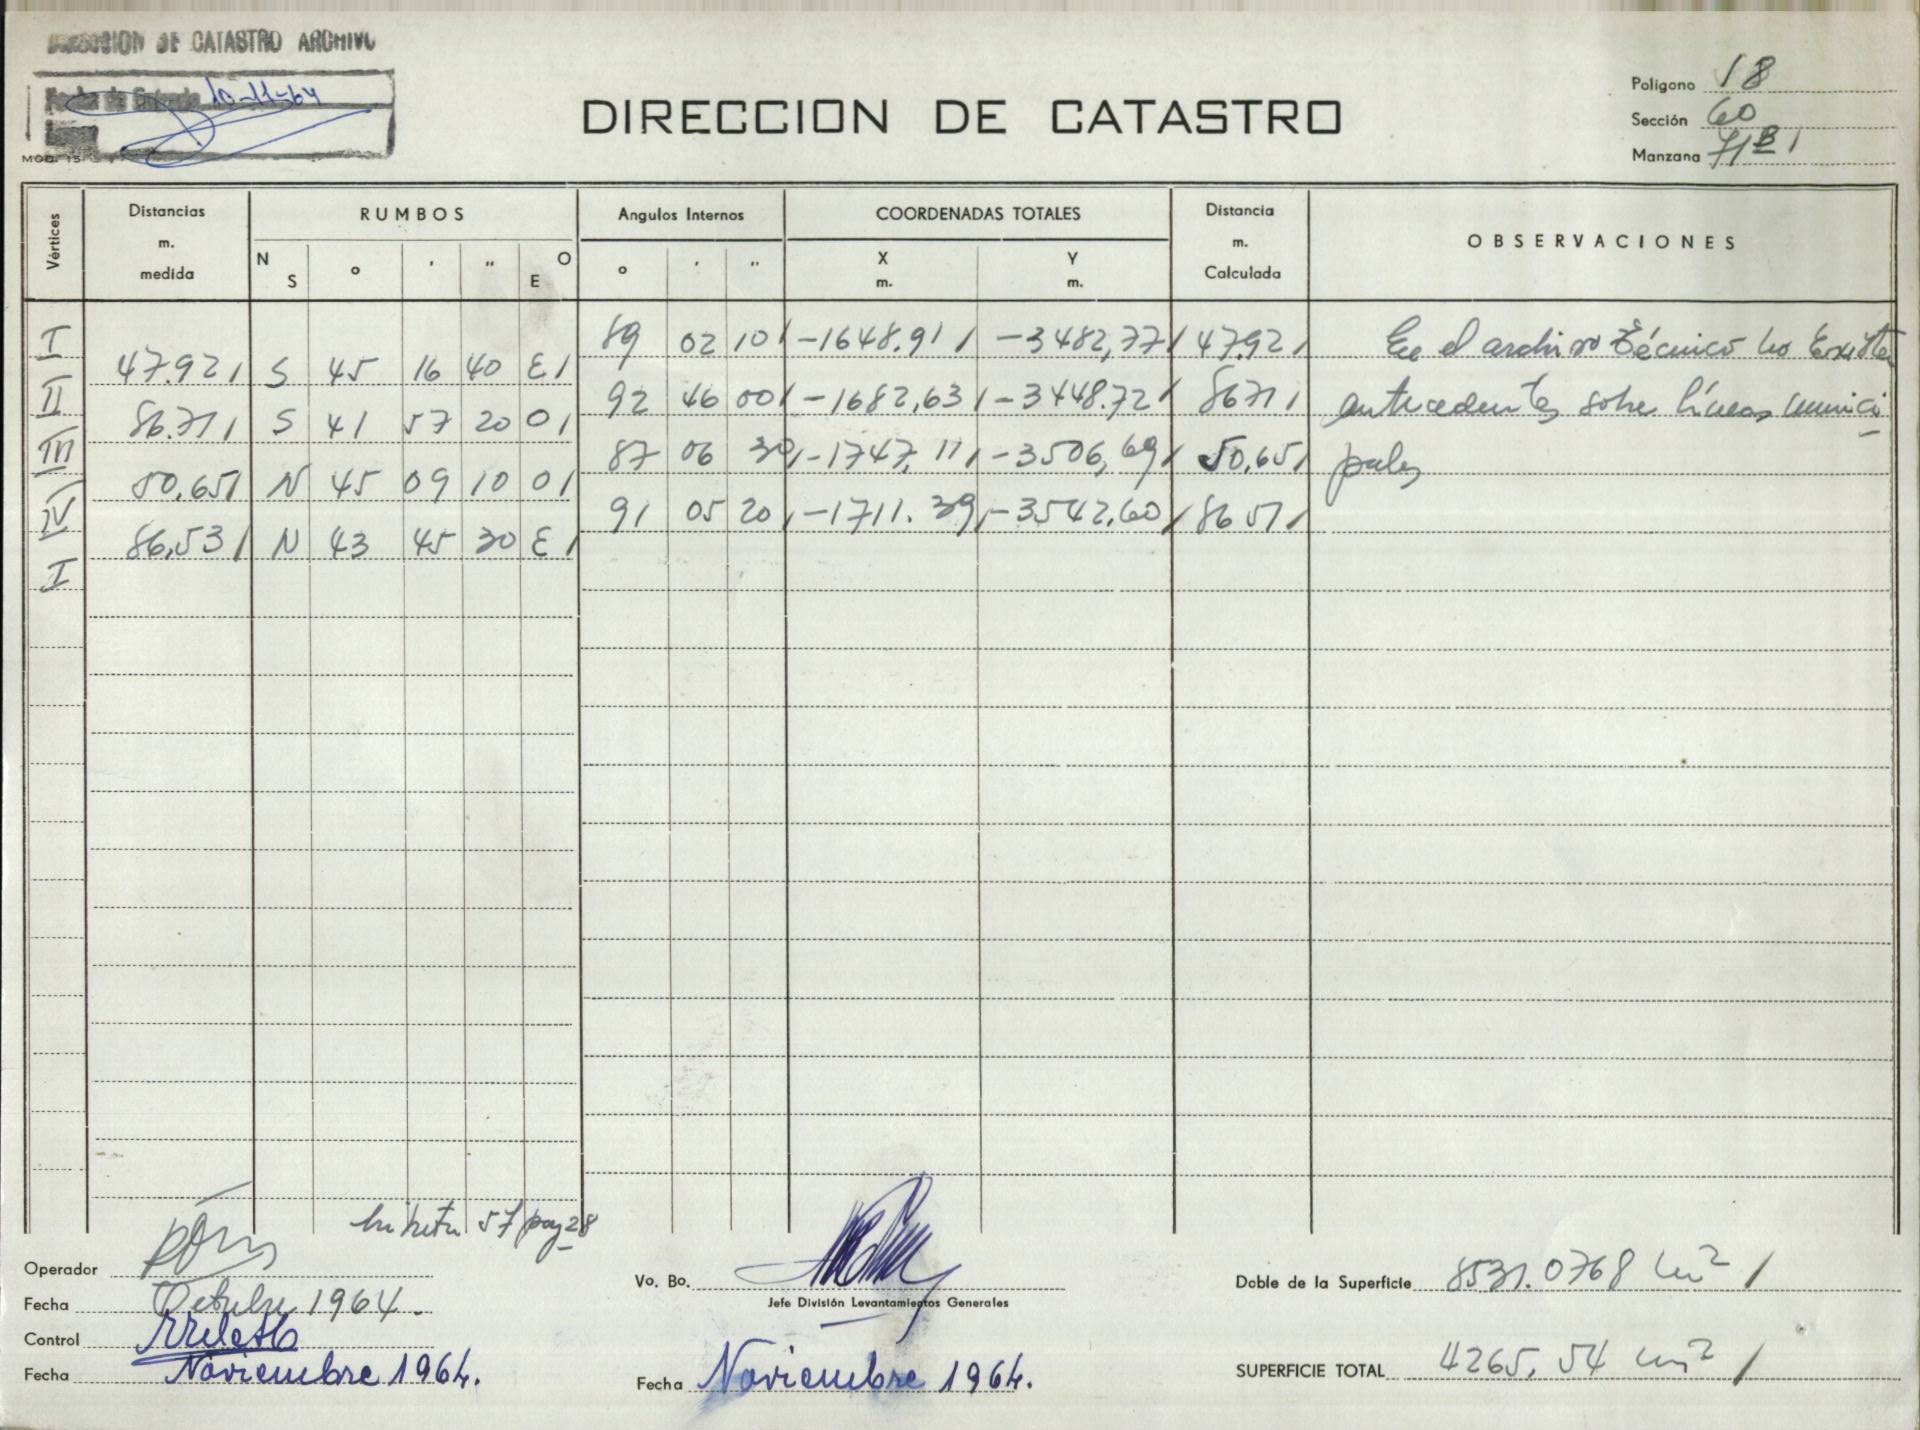 DIRECCION DE CATASTRO ARCHIVO
Fecha de Entrada 10-11-64
MOD. 15
DIRECCION DE CATASTRO
Polígono 18
Sección 60
Manzana 71B
Vértices
Distancias m. medida
RUMBOS
N S ° ' " E O
Angulos Internos
° ' "
COORDENADAS TOTALES
X m. Y m.
Distancia m. Calculada
OBSERVACIONES
I 89 02 10 -1648.91 -3482,77 47.92 En el archivo Técnico no Existen
47.92 S 45 16 40 E
II 92 46 00 -1682,63 -3448.72 86.71 antecedentes sobre líneas munici
86.71 S 41 57 20 O
III 87 06 30 -1747.11 -3506,69 50.65 pales
50.65 N 45 09 10 O
IV 91 05 20 -1711.39 -3542.60 86 51
86,53 N 43 45 30 E
I
57 pag 28
Operador
Fecha Octubre 1964.
Control
Fecha Noviembre 1964.
Vo. Bo.
Jefe División Levantamientos Generales
Fecha Noviembre 1964.
Doble de la Superficie 8531.0768 m²
SUPERFICIE TOTAL 4265.54 m²